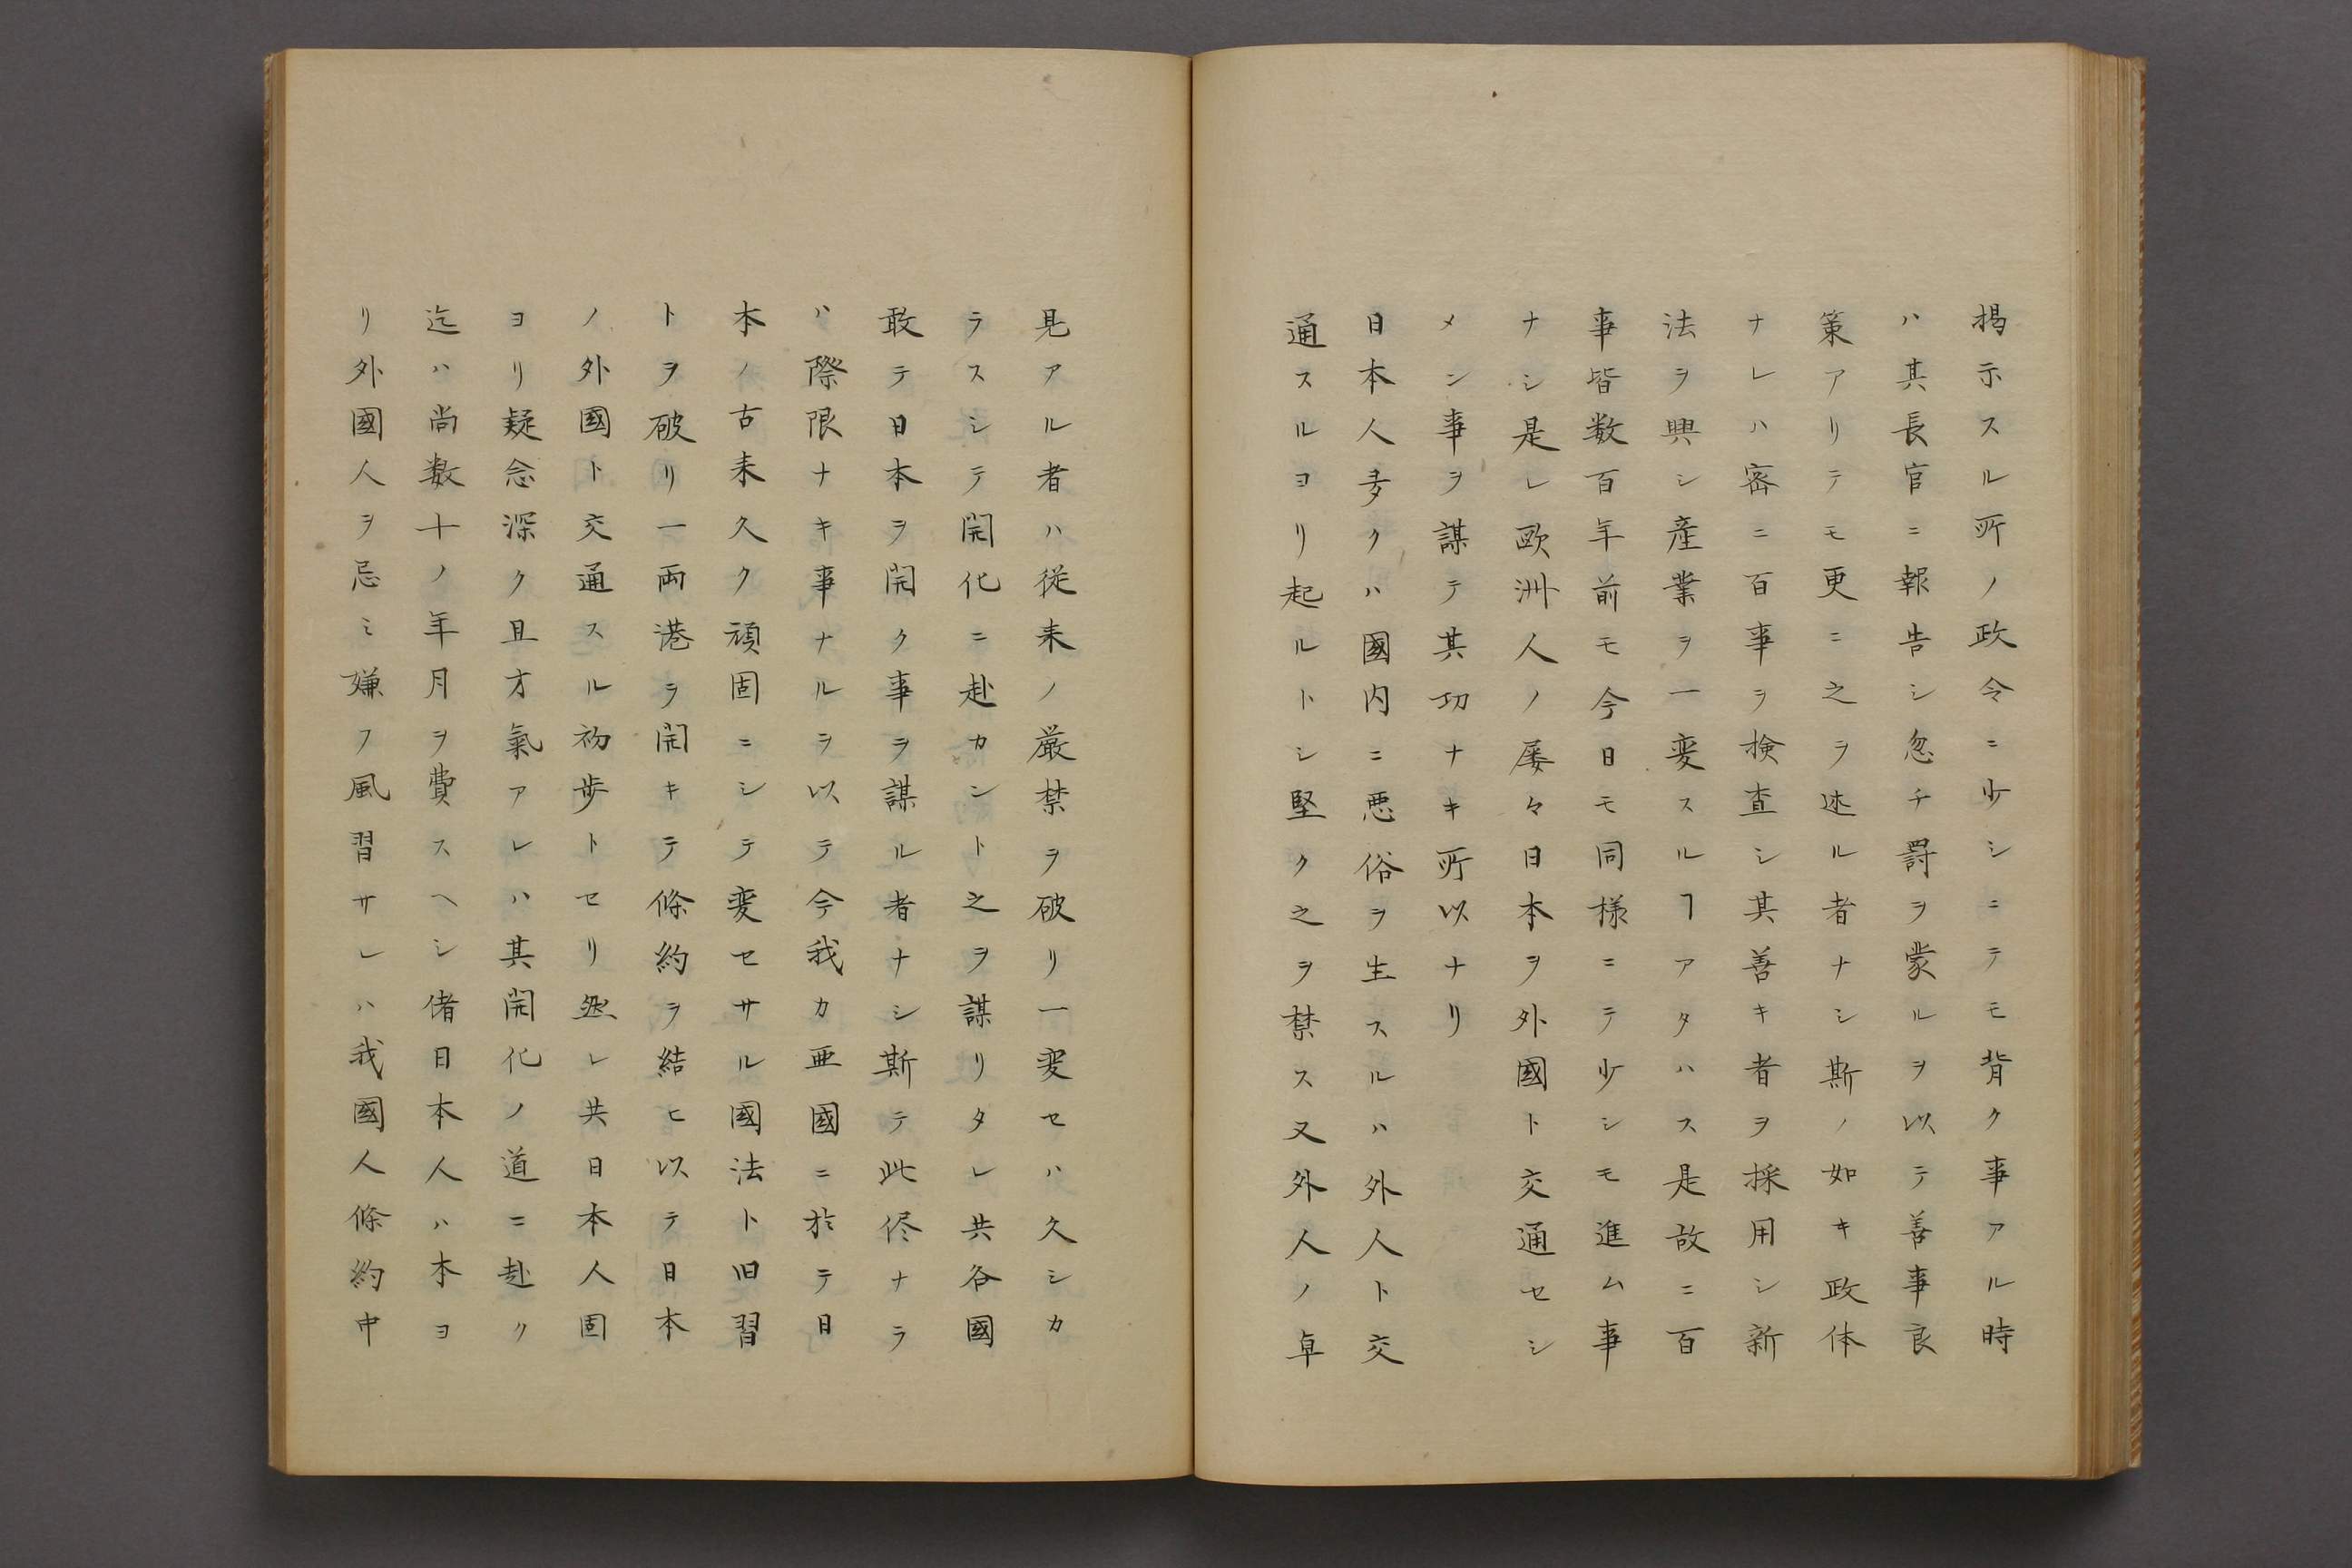 掲示スル所ノ政令ニ少シニテモ背ク事アル時
ハ其長官ニ報告シ忽チ罰ヲ蒙ルヲ以テ善事良
策アリテモ更ニ之ヲ述ル者ナシ斯ノ如キ政体
ナレハ密ニ百事ヲ検査シ其善キ者ヲ採用シ新
法ヲ興シ産業ヲ一変スルヿアタハス是故ニ百
事皆数百年前モ今日モ同様ニテ少シモ進ム事
ナシ是レ欧洲人ノ屡々日本ヲ外國ト交通セシ
メン事ヲ謀テ其功ナキ所以ナリ
日本人多クハ國内ニ悪俗ヲ生スルハ外人ト交
通スルヨリ起ルトシ堅ク之ヲ禁ス又外人ノ卓
見アル者ハ従来ノ厳禁ヲ破リ一変セハ久シカ
ラスシテ開化ニ赴カント之ヲ謀リタレ共各國
敢テ日本ヲ開ク事ヲ謀ル者ナシ斯テ此侭ナラ
ハ際限ナキ事ナルヲ以テ今我カ亜國ニ於テ日
本ノ古来久ク頑固ニシテ変セサル國法ト旧習
トヲ破リ一両港ヲ開キテ條約ヲ結ヒ以テ日本
ノ外國ト交通スル初歩トセリ然レ共日本人固
ヨリ疑念深ク且才氣アレハ其開化ノ道ニ赴ク
迄ハ尚数十ノ年月ヲ費スヘシ偖日本人ハ本ヨ
リ外國人ヲ忌ミ嫌フ風習サレハ我國人條約中